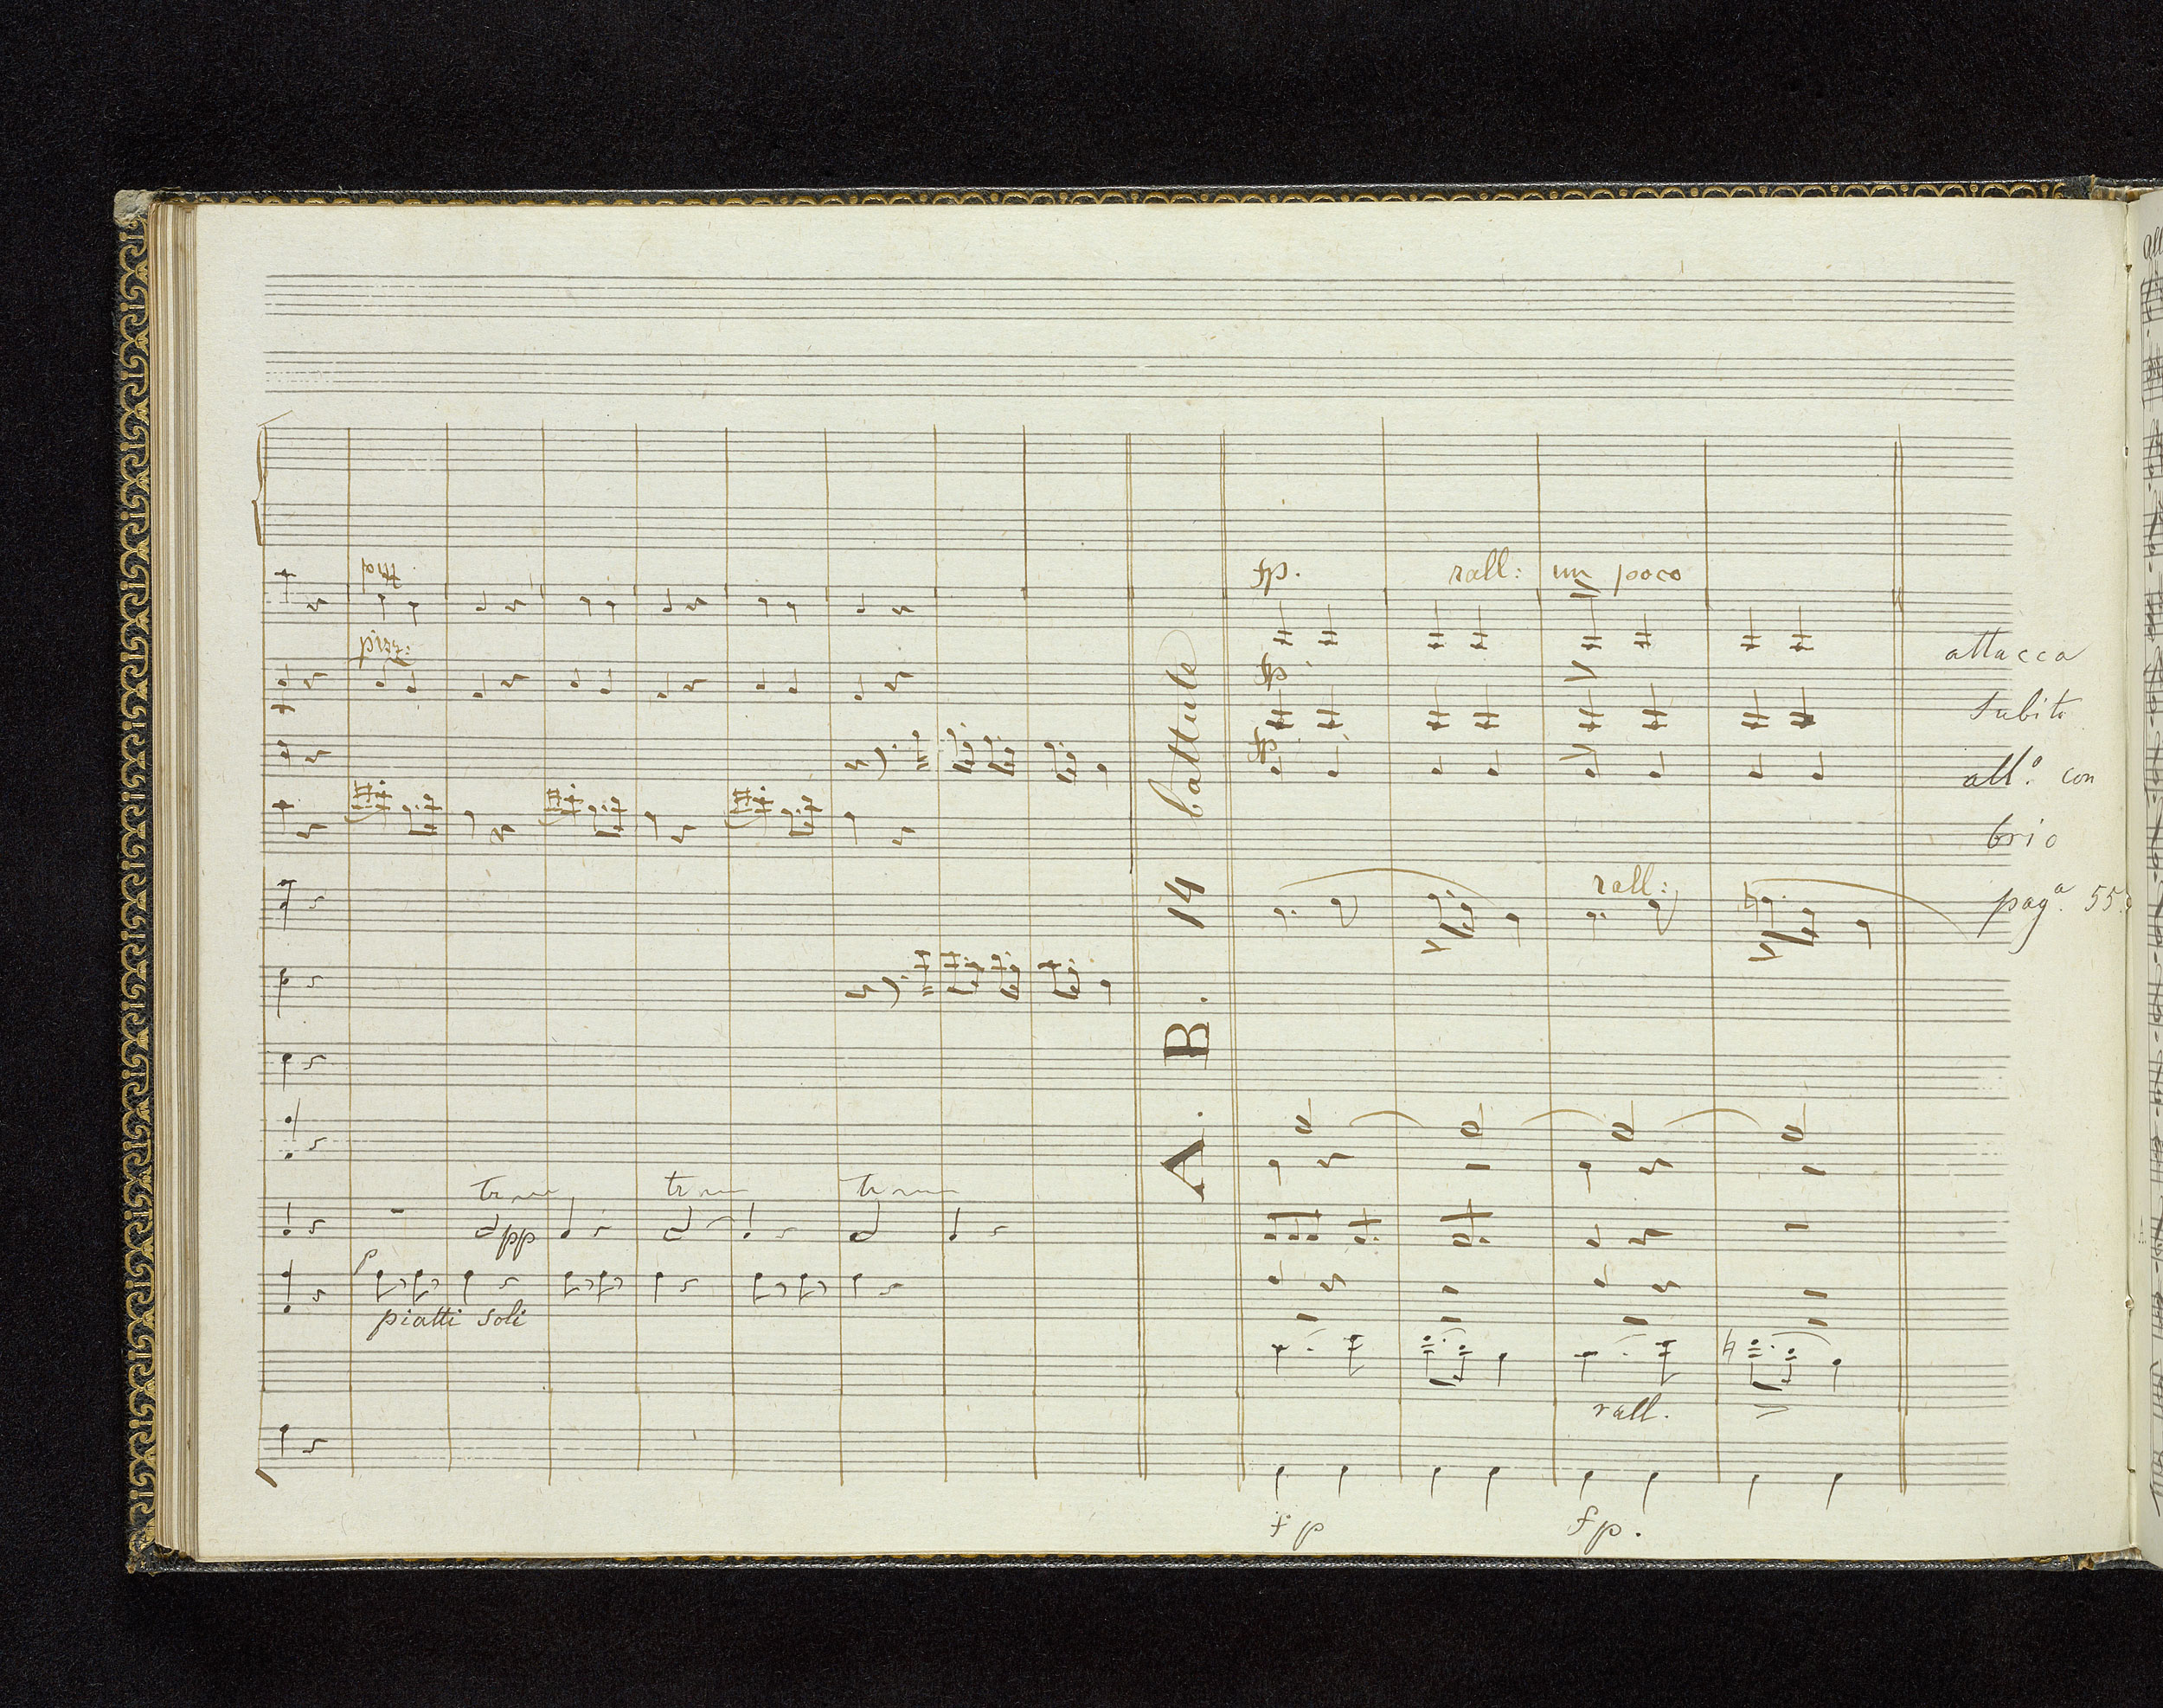 pizz
fp.
rall: un poco
pizz:
fp
attacca
subito
fp
all.º con
brio
rall:
pag.ª 55.
A. B. 14 battute
tr
tr
tr
pp
p
piatti soli
rall.
fp
fp.